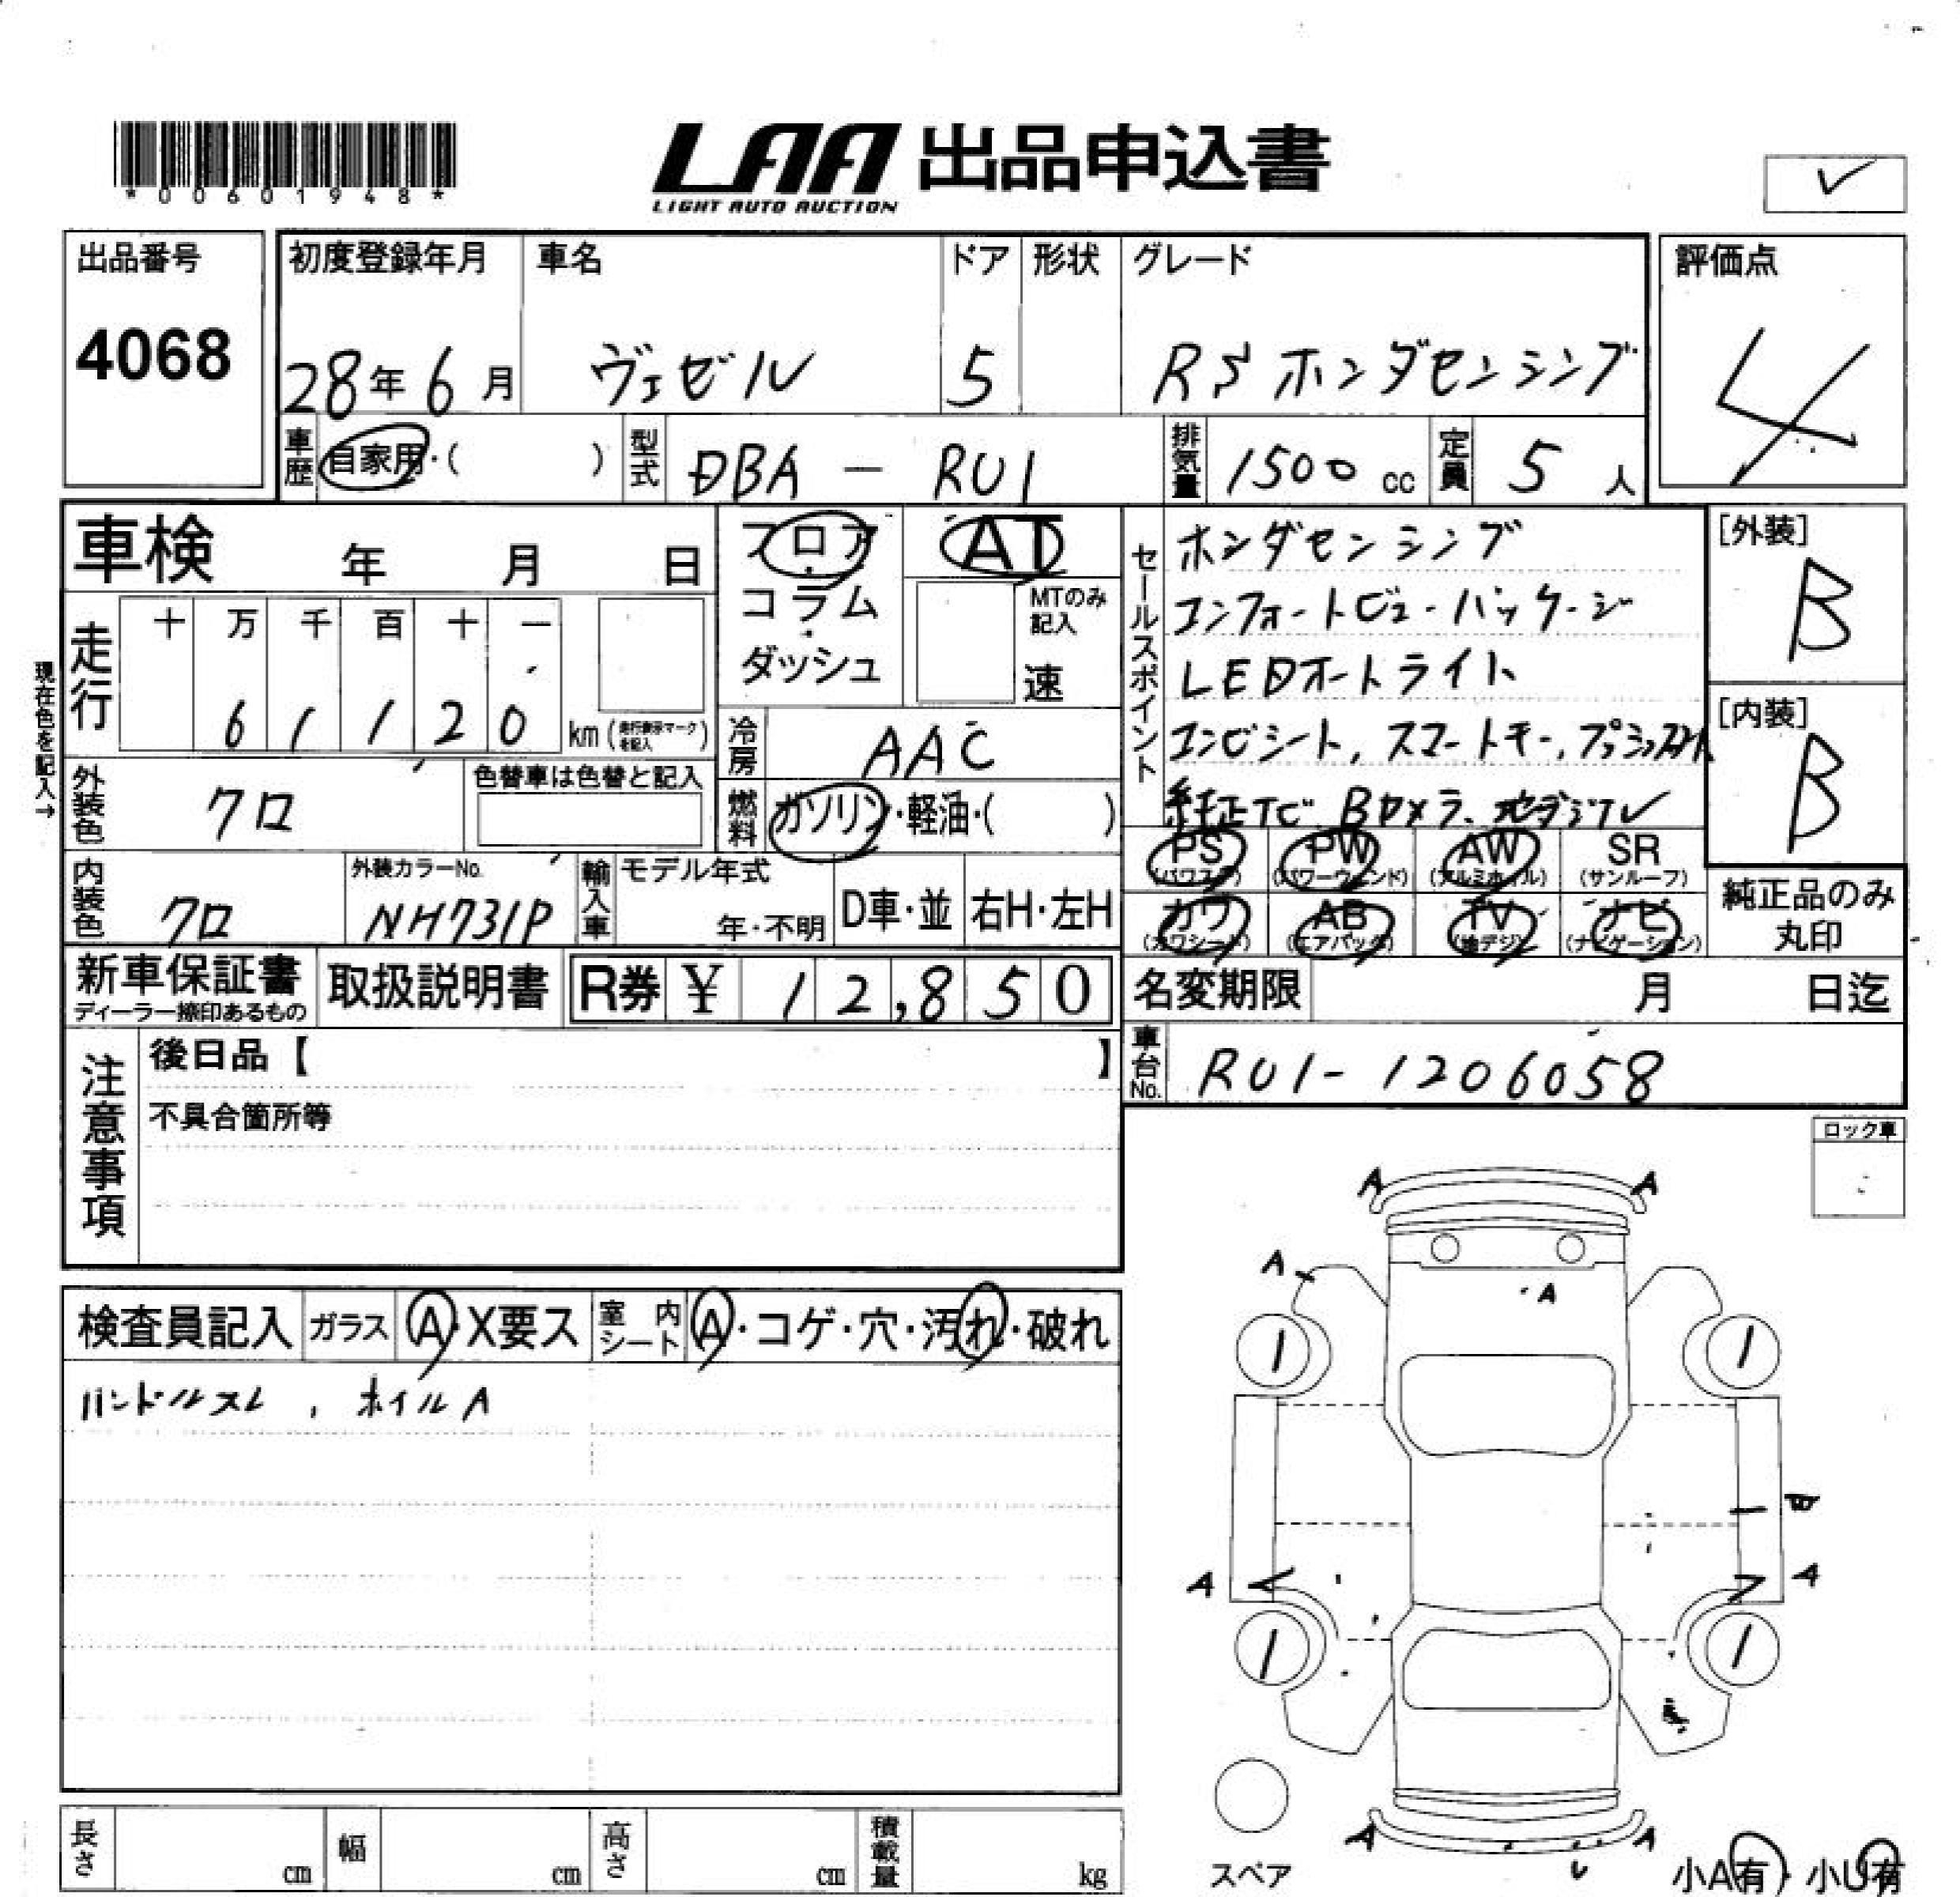 *00601948*
LAA 出品申込書
LIGHT AUTO AUCTION
出品番号
4068
初度登録年月 車名 ドア 形状 グレード
28年6月 ヴェゼル 5 RSホンダセンシング
評価点
4
車歴 自家用・( ) 型式 DBA - RU1 排気量 1500 cc 定員 5 人
車検 年 月 日
フロア・コラム・ダッシュ
AT
MTのみ記入
速
走行 十 万 千 百 十 一
6 1 1 2 0 km (走行表示マークを記入)
現在色を記入→
冷房 AAC
外装色 クロ
色替車は色替と記入
燃料 ガソリン・軽油・( )
内装色 クロ
外装カラーNo. NH731P
輸入車 モデル年式 年・不明 D車・並 右H・左H
セールスポイント
ホンダセンシング
コンフォートビューパッケージ
LEDオートライト
コンビシート, スマートキー,
純正ナビ Bカメラ、地デジTV
[外装]
B
[内装]
B
PS (パワステ) PW (パワーウィンド) AW (アルミホイル) SR (サンルーフ)
カワ (カワシート) AB (エアバッグ) TV (地デジ) ナビ (ナビゲーション)
純正品のみ
丸印
新車保証書
ディーラー捺印あるもの
取扱説明書
R券 ¥ 12,850
名変期限 月 日迄
車台No. RU1-1206058
注意事項
後日品【 】
不具合箇所等
ロック車
検査員記入 ガラス A・X要ス 室内シート A・コゲ・穴・汚れ・破れ
ハンドルスレ , ホイルA
A A
A
A
1 1
B
A A
1 1
A A
U
スペア
小A有・小U有
長さ cm 幅 cm 高さ cm 積載量 kg